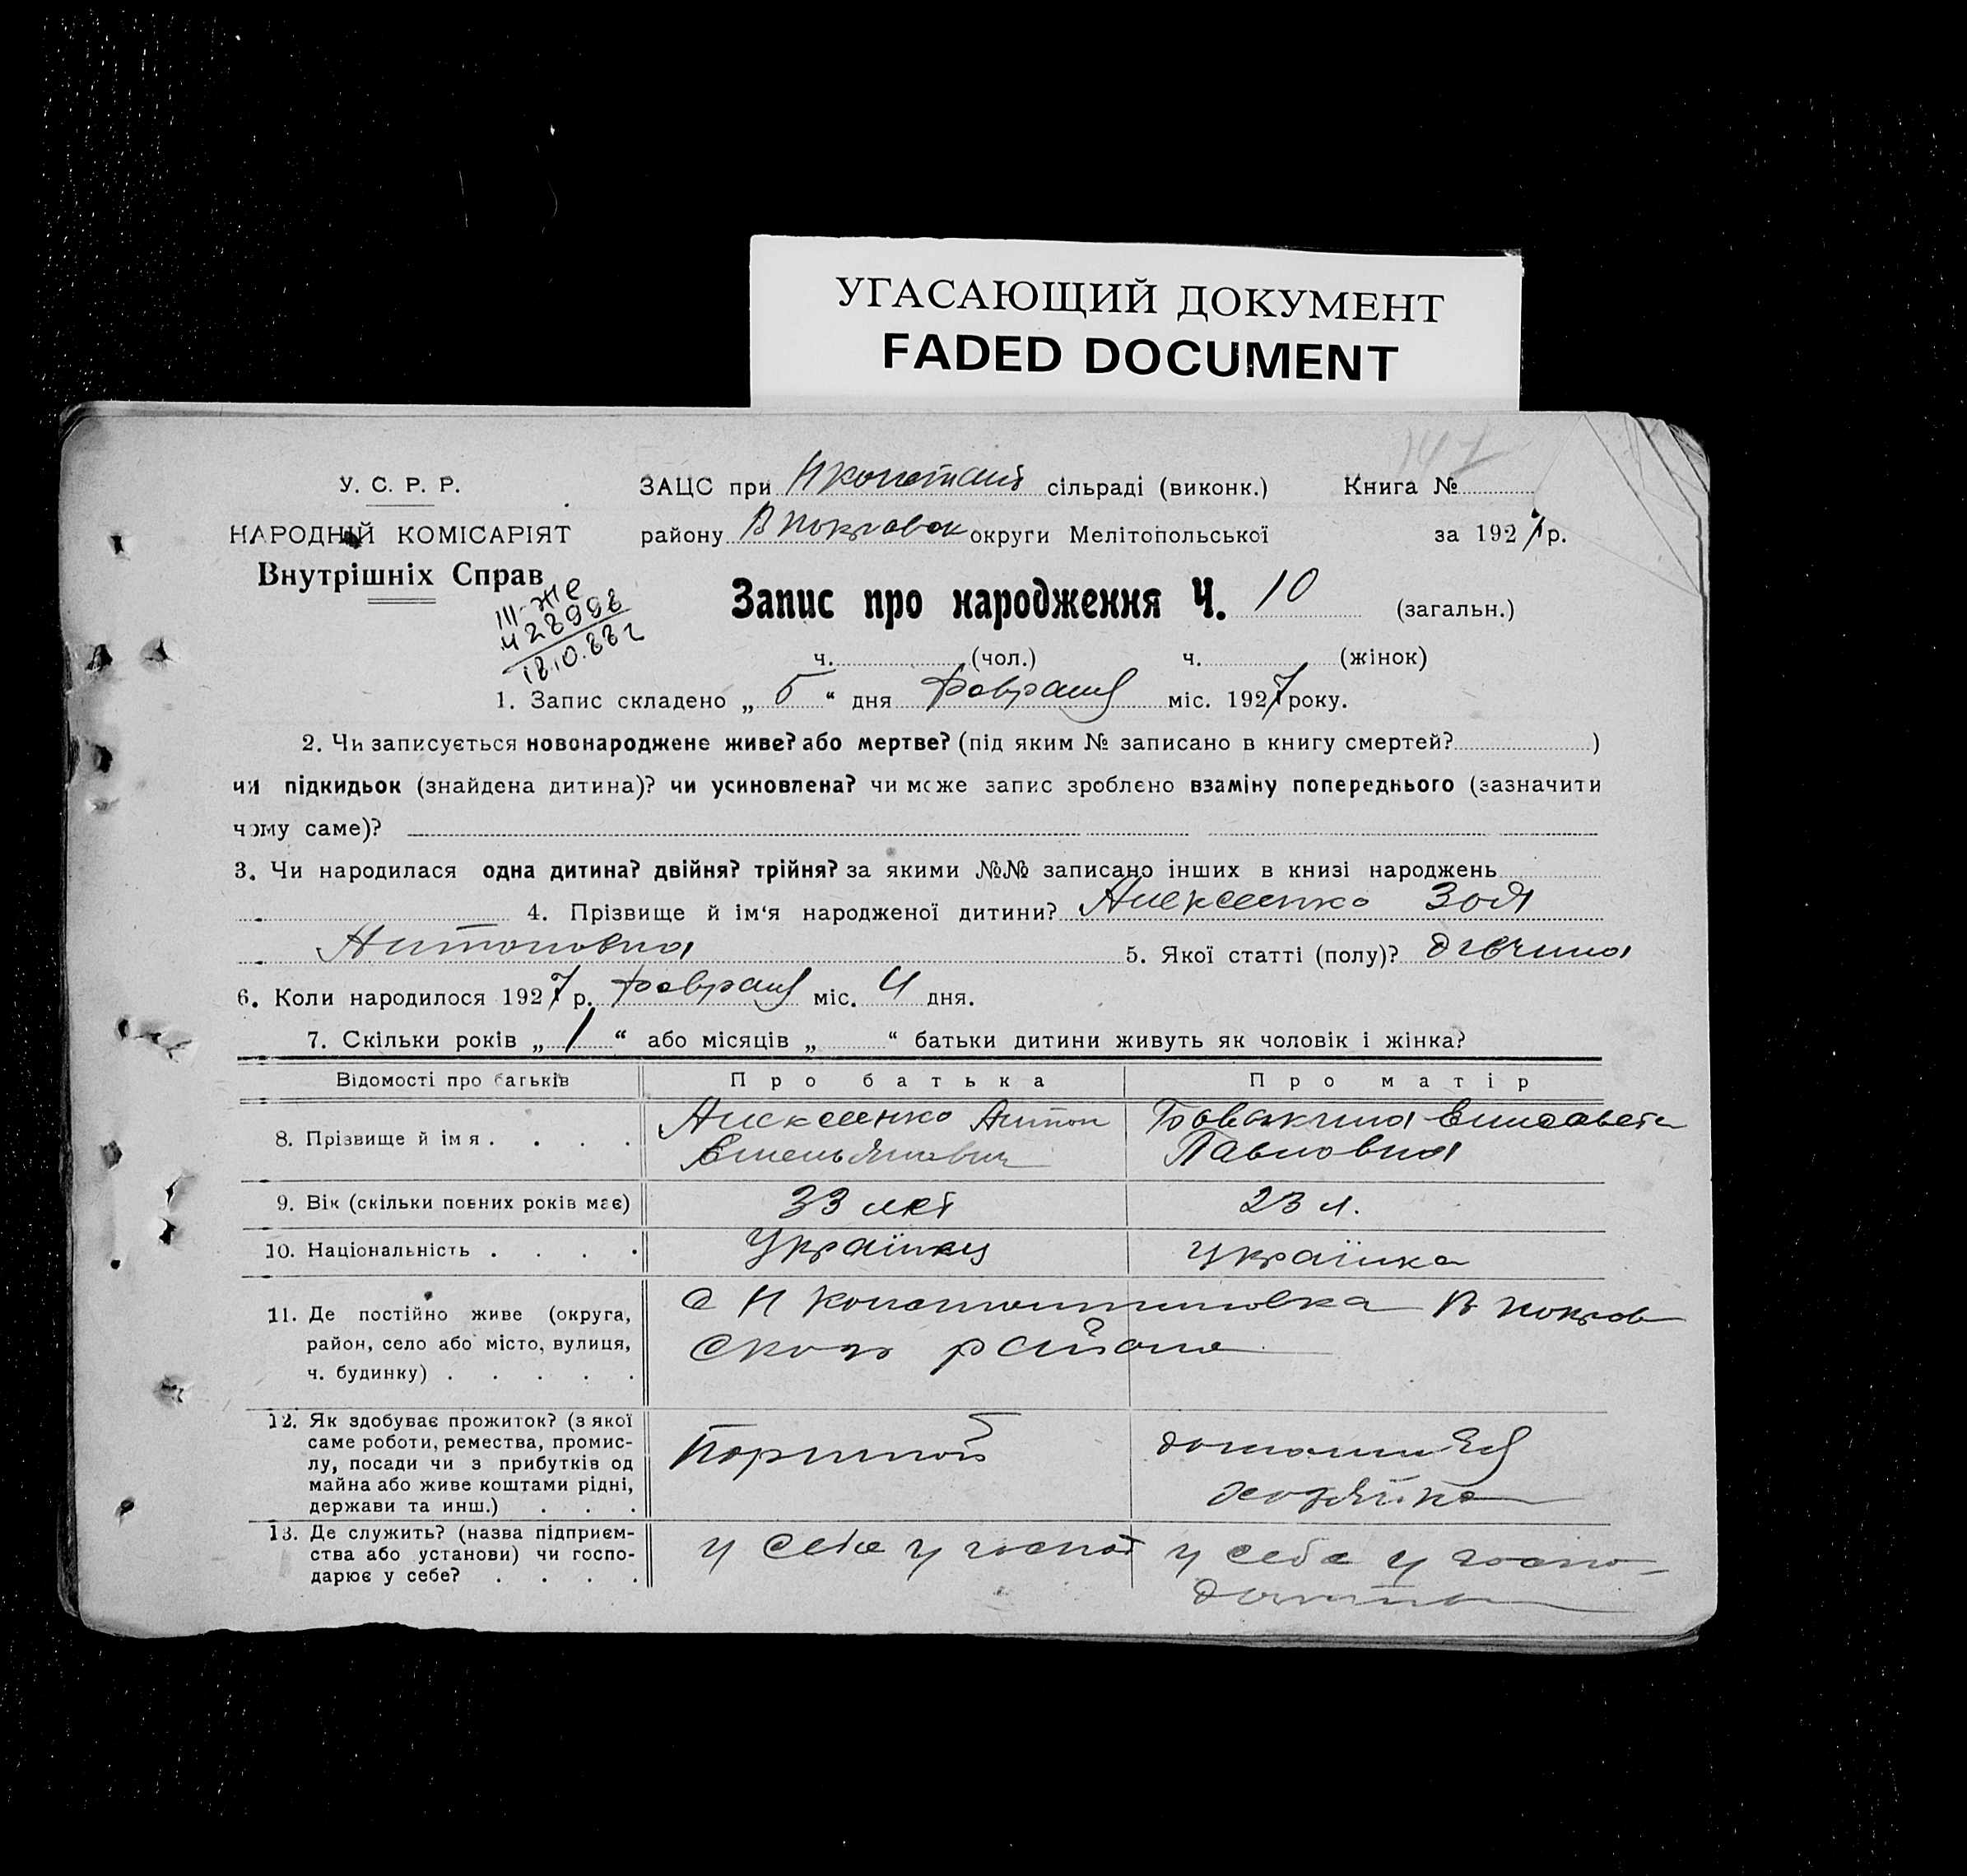 УГАСАЮЩИЙ ДОКУМЕНТ
FADED DOCUMENT
147
У. С. Р. Р.
ЗАЦС при Н Констант сільраді (виконк.) Книга №
НАРОДНІЙ КОМІСАРІЯТ
району В Покровск округи Мелітопольської за 1927 р.
Внутрішніх Справ
III-ЖС
428998
18.10.88г
Запис про народження Ч. 10 (загальн.)
ч. (чол.) ч. (жінок)
1. Запис складено „ 5 “ дня февраля міс. 1927 року.
2. Чи записується новонароджене живе? або мертве? (під яким № записано в книгу смертей? )
чи підкидьок (знайдена дитина)? чи усиновлена? чи може запис зроблено взаміну попереднього (зазначити
чому саме)?
3. Чи народилася одна дитина? двійня? трійня? за якими №№ записано інших в книзі народжень
4. Прізвище й ім‘я народженої дитини? Алексеенко Зоя
Антоновна 5. Якої статті (полу)? дівчина
6. Коли народилося 1927 р. февраля міс. 4 дня.
7. Скільки років „ 1 “ або місяців „ “ батьки дитини живуть як чоловік і жінка?
Відомості про батьків Про батька Про матір
8. Прізвище й імя . . . . Алексеенко Антон Елисавета
Емельянович Павловна
9. Вік (скільки повних років має) 33 лет 23 л.
10. Національність . . . . Українец українка
11. Де постійно живе (округа, с Н Константиновка В Покров
район, село або місто, вулиця, ского района
ч. будинку) . . . . .
12. Як здобуває прожиток? (з якої
саме роботи, ремества, промис- домашняя
лу, посади чи з прибутків од
майна або живе коштами рідні, хозяйка
держави та инш.) . . .
13. Де служить? (назва підприєм- у себе у госпо у себе у госпо-
ства або установи) чи госпо-
дарює у себе? . . . .